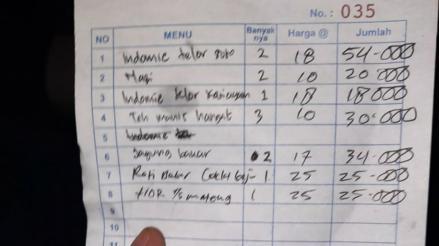 No.: 035
NO MENU Banyak nya Harga @ Jumlah
1 Indomie telor soto 2 18 54.000
2 Nasi 2 10 20 000
3 Indomie telor 1 18 18000
4 Teh manis hangat 3 10 30.000
5 Indomie
6 Jagung bakar 2 17 34.000
7 Roti Bakar 1 25 25.000
8 1/2 mateng 1 25 25.000
9
10
11